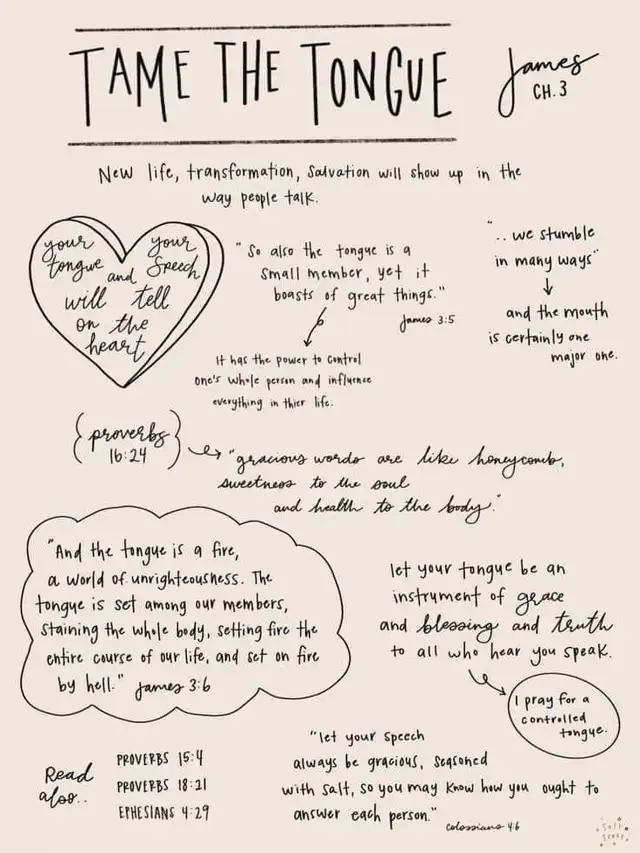 TAME THE TONGUE
James
CH. 3
New life, transformation, salvation will show up in the
way people talk.
your your
tongue and speech
will tell
on the
heart
"So also the tongue is a
small member, yet it
boasts of great things."
James 3:5
It has the power to control
one's whole person and influence
everything in thier life.
".. we stumble
in many ways"
and the mouth
is certainly one
major one.
{proverbs
16:24}
"gracious words are like honeycomb,
sweetness to the soul
and health to the body."
"And the tongue is a fire,
a world of unrighteousness. The
tongue is set among our members,
staining the whole body, setting fire the
entire course of our life, and set on fire
by hell." James 3:6
let your tongue be an
instrument of grace
and blessing and truth
to all who hear you speak.
I pray for a
controlled
tongue.
Read
also..
PROVERBS 15:4
PROVERBS 18:21
EPHESIANS 4:29
"let your speech
always be gracious, seasoned
with salt, so you may know how you ought to
answer each person."
Colossians 4:6